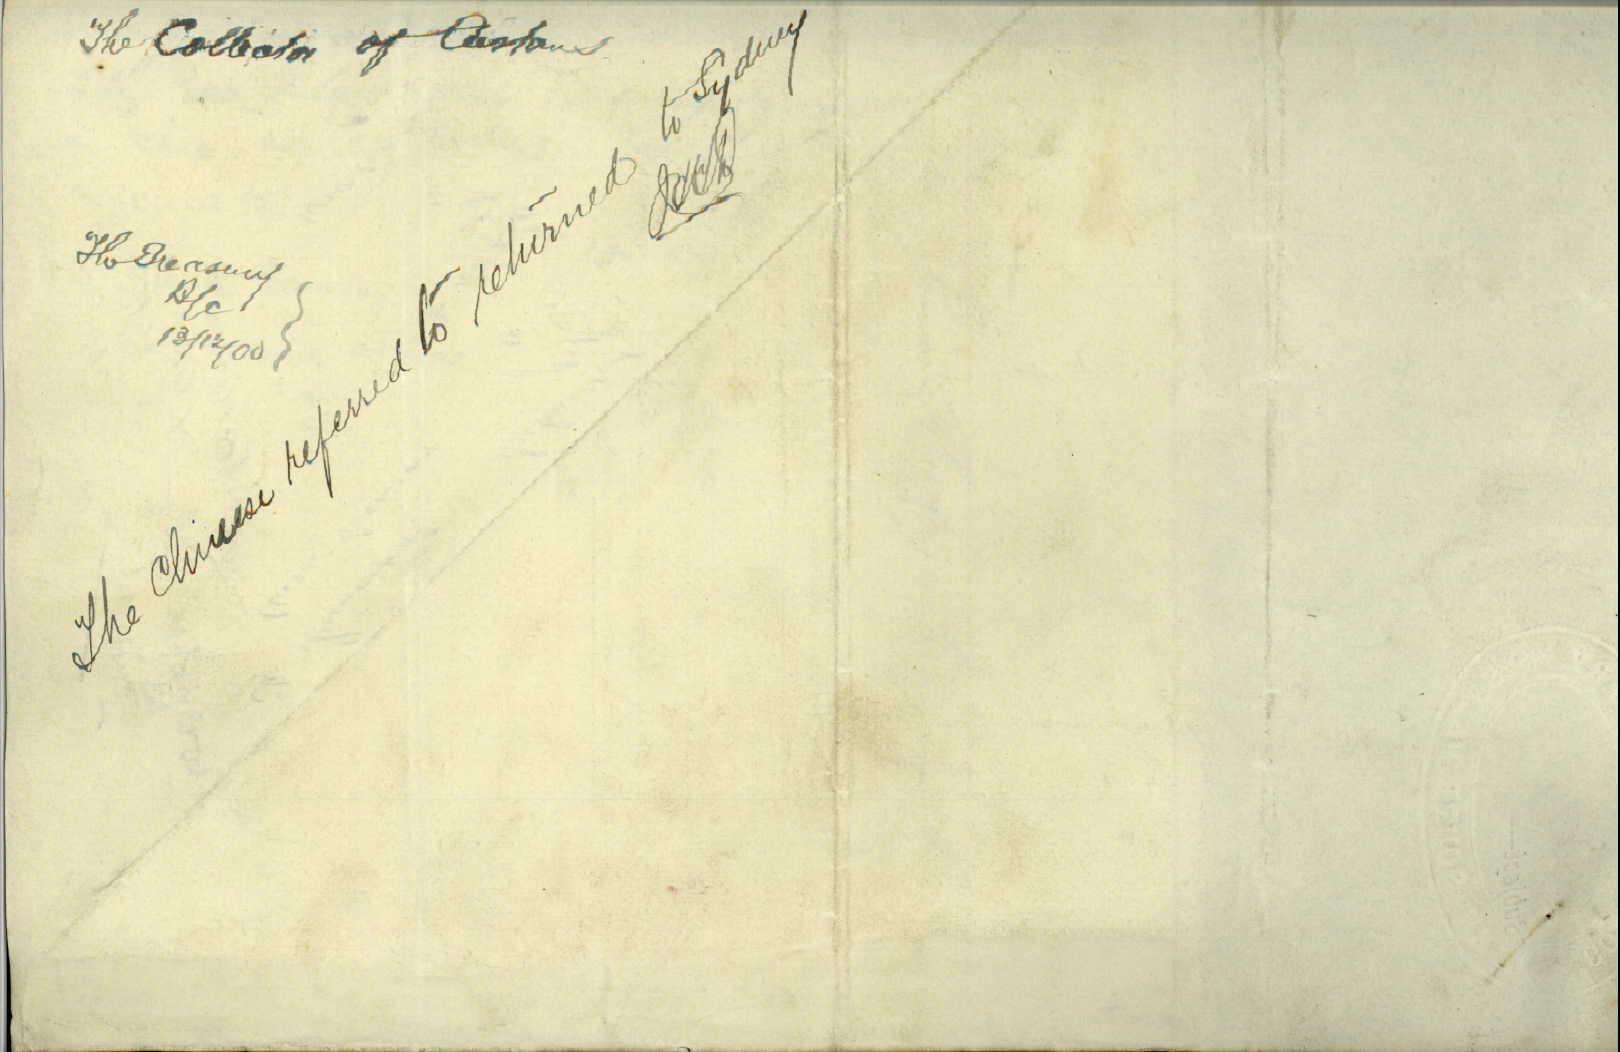 The Collector of Customs
The Treasury
B/C
13/12/00
The Chinese referred to returned to Sydney